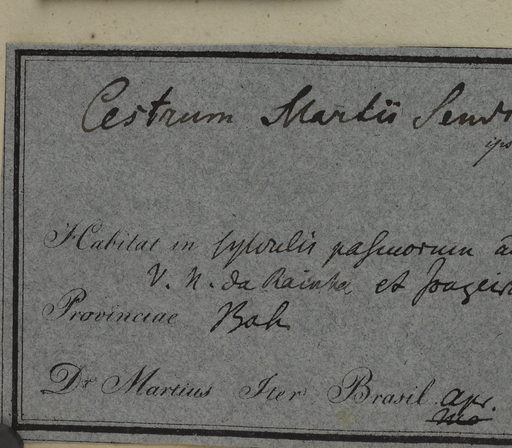 Cestrum Martii Send
ips
Habitat in sylvulis passuorum a
V. N. da Rainha et Joazeir
Provinciae Bah
Dr. Martius Iter Brasil. apr.